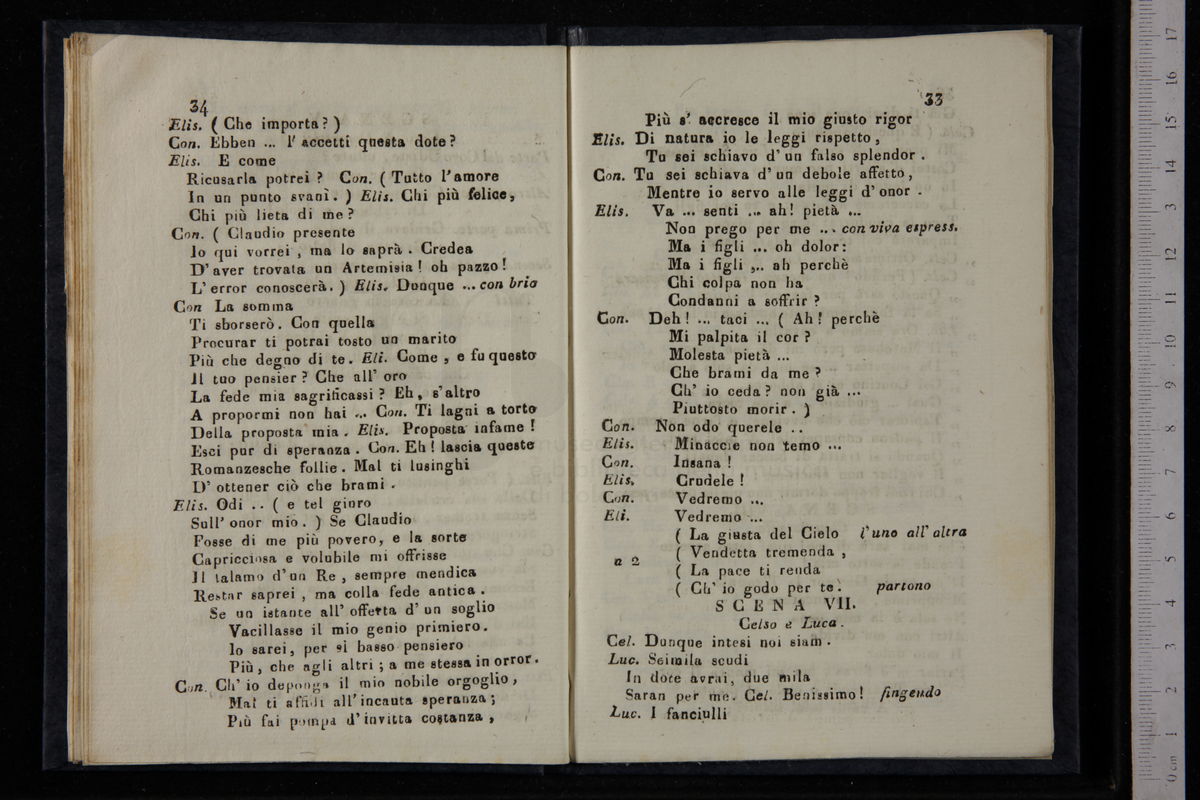 34
Elis. ( Che importa ? )
Con. Ebben ... l' accetti questa dote ?
Elis. E come
Ricusarla potrei ? Con. ( Tutto l'amore
In un punto svanì. ) Elis. Chi più felice,
Chi più lieta di me ?
Con. ( Claudio presente
Io qui vorrei , ma lo saprà . Credea
D' aver trovata un Artemisia ! oh pazzo !
L' error conoscerà. ) Elis. Dunque ... con brio
Con La somma
Ti sborserò. Con quella
Procurar ti potrai tosto un marito
Più che degno di te. Eli. Come , e fu questo
Il tuo pensier ? Che all' oro
La fede mia sagrificassi ? Eh, s'altro
A propormi non hai ... Con. Ti lagni a torto
Della proposta mia . Elis. Proposta infame !
Esci pur di speranza . Con. Eh ! lascia queste
Romanzesche follie . Mal ti lusinghi
D' ottener ciò che brami .
Elis. Odi .. ( e tel giuro
Sull' onor mio . ) Se Claudio
Fosse di me più povero, e la sorte
Capricciosa e volubile mi offrisse
Il talamo d'un Re , sempre mendica
Restar saprei , ma colla fede antica .
Se un istante all' offerta d' un soglio
Vacillasse il mio genio primiero.
Io sarei, per sì basso pensiero
Più, che agli altri ; a me stessa in orror.
Con. Ch' io deponga il mio nobile orgoglio ,
Mal ti affidi all'incauta speranza ;
Più fai pompa d'invitta costanza ,
33
Più s' accresce il mio giusto rigor
Elis. Di natura io le leggi rispetto ,
Tu sei schiavo d' un falso splendor .
Con. Tu sei schiava d' un debole affetto ,
Mentre io servo alle leggi d' onor .
Elis. Va ... senti ... ah! pietà ...
Non prego per me ... con viva espress.
Ma i figli ... oh dolor :
Ma i figli ... ah perchè
Chi colpa non ha
Condanni a soffrir ?
Con. Deh ! ... taci ... ( Ah ! perchè
Mi palpita il cor ?
Molesta pietà ...
Che brami da me ?
Ch' io ceda ? non già ...
Piuttosto morir . )
Con. Non odo querele ..
Elis. Minaccie non temo ...
Con. Insana !
Elis. Crudele !
Con. Vedremo ...
Eli. Vedremo ...
( La giusta del Cielo l'uno all' altra
( Vendetta tremenda ,
a 2
( La pace ti renda
( Ch' io godo per te . partono
SCENA VII.
Celso e Luca .
Cel. Dunque intesi noi siam .
Luc. Seimila scudi
In dote avrai, due mila
Saran per me. Cel. Benissimo ! fingendo
Luc. I fanciulli
0 cm 1 2 3 4 5 6 7 8 9 10 11 12 13 14 15 16 17